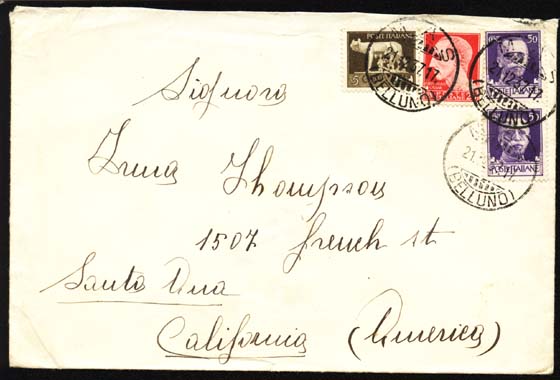 POSTE ITALIANE
5
POSTE ITALIANE
50
POSTE ITALIANE
(BELLUNO)
(BELLUNO)
(BELLUNO)
Signora
Irma Thompson
1507 French st
Santa Ana
California (America)